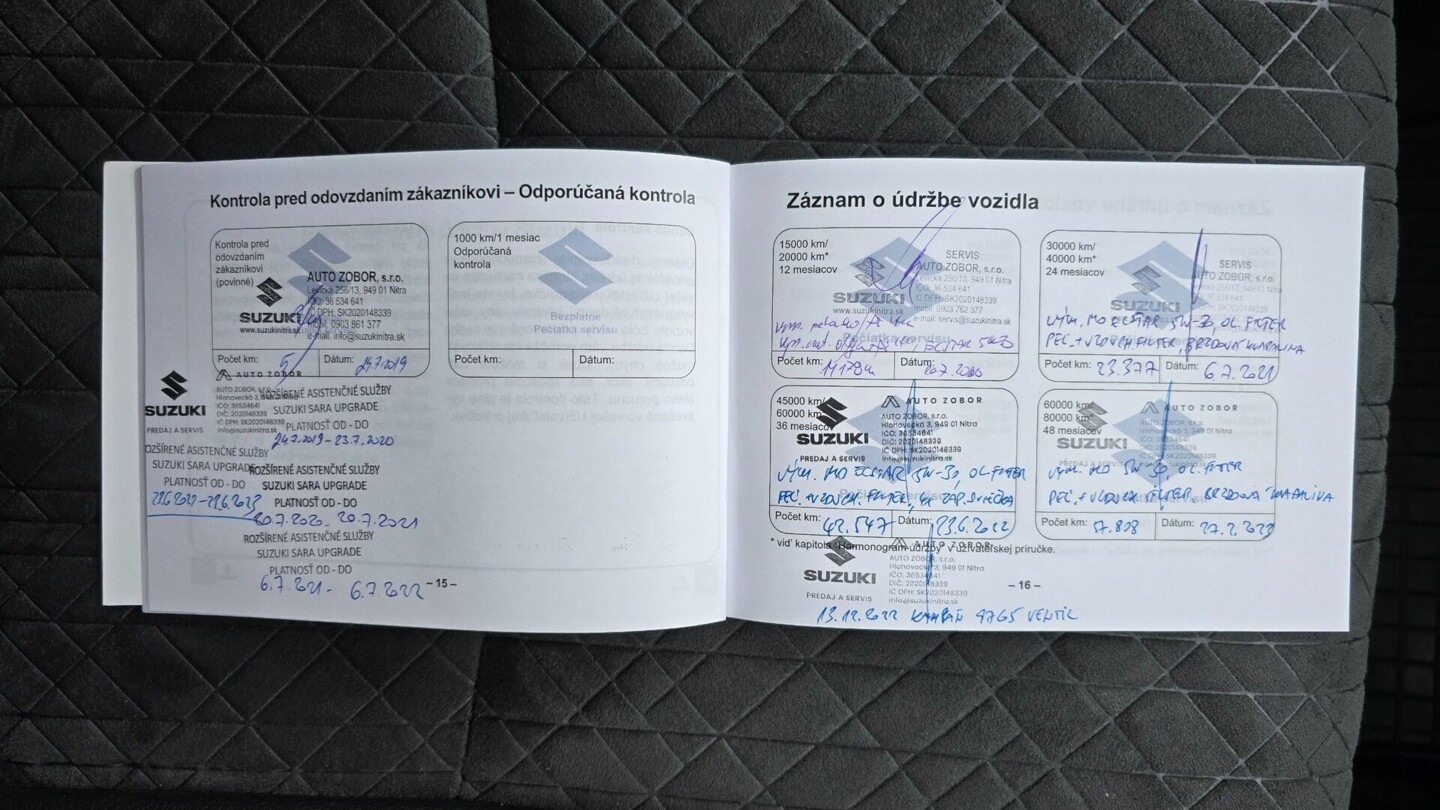 Kontrola pred odovzdaním zákazníkovi – Odporúčaná kontrola
Kontrola pred
odovzdaním
zákazníkovi
(povinné)
AUTO ZOBOR, s.r.o.
Levická 256/13, 949 01 Nitra
IČO: 36 534 641
IČ DPH: SK2020148339
mobil: 0903 861 377
e-mail: info@suzukinitra.sk
SUZUKI
www.suzukinitra.sk
Počet km: 5
Dátum: 24.7.2019
1000 km/1 mesiac
Odporúčaná
kontrola
Bezplatne
Pečiatka servisu
Počet km:
Dátum:
SUZUKI
PREDAJ A SERVIS
AUTO ZOBOR
AUTO ZOBOR, s.r.o.
Hlohovecká 3, 949 01 Nitra
IČO: 36534641
DIČ: 2020148339
IČ DPH: SK2020148339
info@suzukinitra.sk
ROZŠÍRENÉ ASISTENČNÉ SLUŽBY
SUZUKI SARA UPGRADE
PLATNOSŤ OD - DO
24.7.2019 - 23.7.2020
ROZŠÍRENÉ ASISTENČNÉ SLUŽBY
SUZUKI SARA UPGRADE
PLATNOSŤ OD - DO
29.6.2022 - 29.6.2023
ROZŠÍRENÉ ASISTENČNÉ SLUŽBY
SUZUKI SARA UPGRADE
PLATNOSŤ OD - DO
20.7.2020 - 20.7.2021
ROZŠÍRENÉ ASISTENČNÉ SLUŽBY
SUZUKI SARA UPGRADE
PLATNOSŤ OD - DO
6.7.2021 - 6.7.2022
– 15 –
Záznam o údržbe vozidla
15000 km/
20000 km*
12 mesiacov
SERVIS
AUTO ZOBOR, s.r.o.
Levická 256/13, 949 01 Nitra
IČO: 36 534 641
IČ DPH: SK2020148339
mobil: 0903 762 377
e-mail: servis@suzukinitra.sk
SUZUKI
www.suzukinitra.sk
Pečiatka servisu
Počet km:
Dátum: 20.7.2020
30000 km/
40000 km*
24 mesiacov
SERVIS
AUTO ZOBOR, s.r.o.
SUZUKI
VÝM. MO ECSTAR 5W-30, OL. FILTER
PEĽ. + VZDUCH. FILTER, BRZDOVÁ KVAPALINA
Počet km: 23.377
Dátum: 6.7.2021
45000 km/
60000 km*
36 mesiacov
SUZUKI
PREDAJ A SERVIS
AUTO ZOBOR
AUTO ZOBOR, s.r.o.
Hlohovecká 3, 949 01 Nitra
IČO: 36534641
DIČ: 2020148339
IČ DPH: SK2020148339
info@suzukinitra.sk
VÝM. MO ECSTAR 5W-30, OL. FILTER
PEĽ. + VZDUCH. FILTER, ZAP. SVIEČKA
Počet km: 42.547
Dátum: 29.6.2022
60000 km/
80000 km*
48 mesiacov
SUZUKI
PREDAJ A SERVIS
AUTO ZOBOR
AUTO ZOBOR, s.r.o.
Hlohovecká 3, 949 01 Nitra
VÝM. MO 5W-30, OL. FILTER
PEĽ. + VZDUCH. FILTER, BRZDOVÁ KVAPALINA
Počet km: 57.808
Dátum: 27.2.2023
* viď kapitola "Harmonogram údržby" v užívateľskej príručke.
SUZUKI
PREDAJ A SERVIS
AUTO ZOBOR
AUTO ZOBOR, s.r.o.
Hlohovecká 3, 949 01 Nitra
IČO: 36534641
DIČ: 2020148339
IČ DPH: SK2020148339
info@suzukinitra.sk
– 16 –
13.12.2022 KAMPAŇ 9765 VENTIL